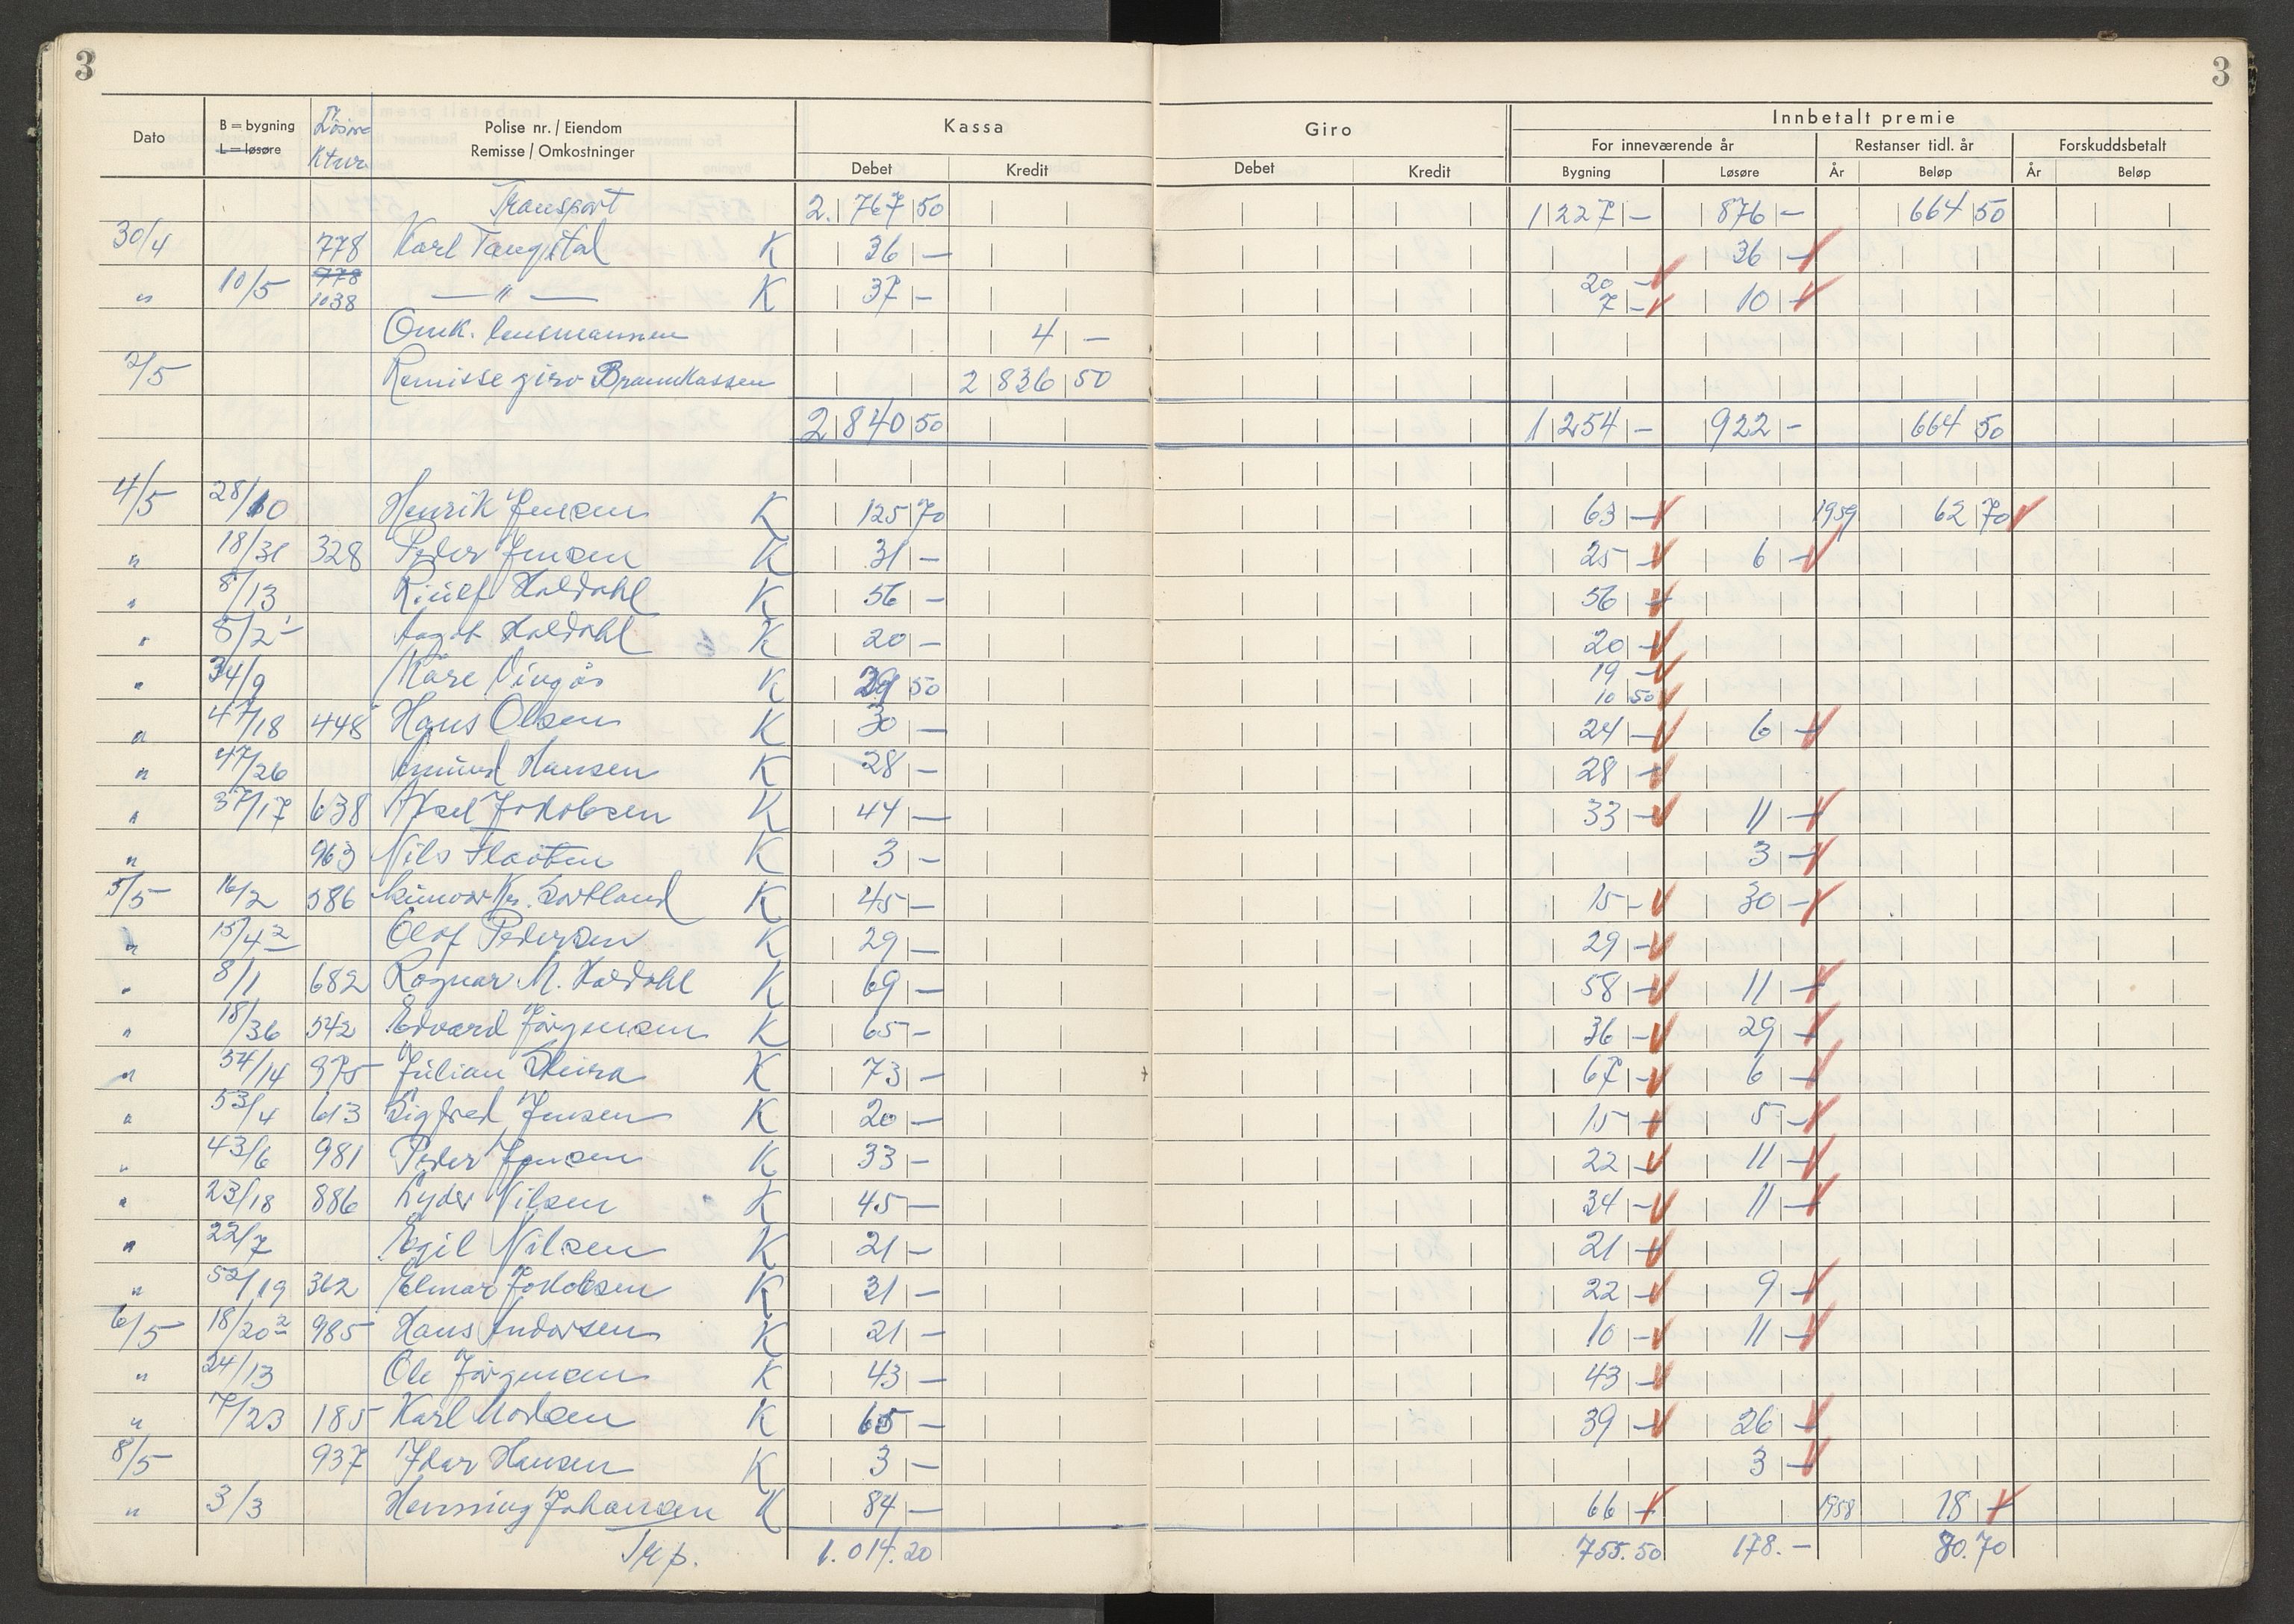 3 3
Dato B = bygning L = løsøre Løsøre Ktnr. Polise nr. / Eiendom Remisse / Omkostninger Kassa Debet Kredit Giro Debet Kredit Innbetalt premie For inneværende år Bygning Løsøre Restanser tidl. år År Beløp Forskuddsbetalt År Beløp
Transport 2.767 50 1 227 — 876 — 664 50
30/4 778 Karl Tangstal K 36 — 36 —
" 10/5 778 1038 — " — K 37 — 20 — 7 — 10 —
Omk. lensmannen 4 —
2/5 Remisse giro Brannkassen 2 836 50
2 840 50 1 254 — 922 — 664 50
4/5 28/10 Henrik Jensen K 125 70 63 — 1959 62 70
" 18/31 328 Peder Jensen K 31 — 25 — 6 —
" 8/13 Haldahl K 56 — 56 —
" 8/2 Haldahl K 20 — 20 —
" 34/9 Kåre Vingås K 29 50 19 — 10 50
" 47/18 448 Hans Olsen K 30 — 24 — 6 —
" 47/26 Amund Hansen K 28 — 28 —
" 37/17 638 Aksel Jakobsen K 44 — 33 — 11 —
" 963 Nils K 3 — 3 —
5/5 16/2 586 Gunvor Kr. Sortland K 45 — 15 — 30 —
" 15/4 2 Olaf Pedersen K 29 — 29 —
" 8/1 682 Ragnar M. Haldahl K 69 — 58 — 11 —
" 18/36 542 Edvard Jørgensen K 65 — 36 — 29 —
" 54/14 975 Julian K 73 — 67 — 6 —
" 53/4 613 Sigfred Jensen K 20 — 15 — 5 —
" 43/6 981 Peder Jensen K 33 — 22 — 11 —
" 23/18 886 Lyder Nilsen K 45 — 34 — 11 —
" 22/7 Egil Nilsen K 21 — 21 —
" 52/19 362 Elmar Jakobsen K 31 — 22 — 9 —
6/5 18/20 2 985 Hans Andersen K 21 — 10 — 11 —
" 24/13 Ole Jørgensen K 43 — 43 —
" 17/23 185 Karl Madsen K 65 — 39 — 26 —
8/5 937 Idar Hansen K 3 — 3 —
" 3/3 Henning Johansen K 84 — 66 — 1958 18 —
Trp. 1.014.20 755.50 178.— 80.70